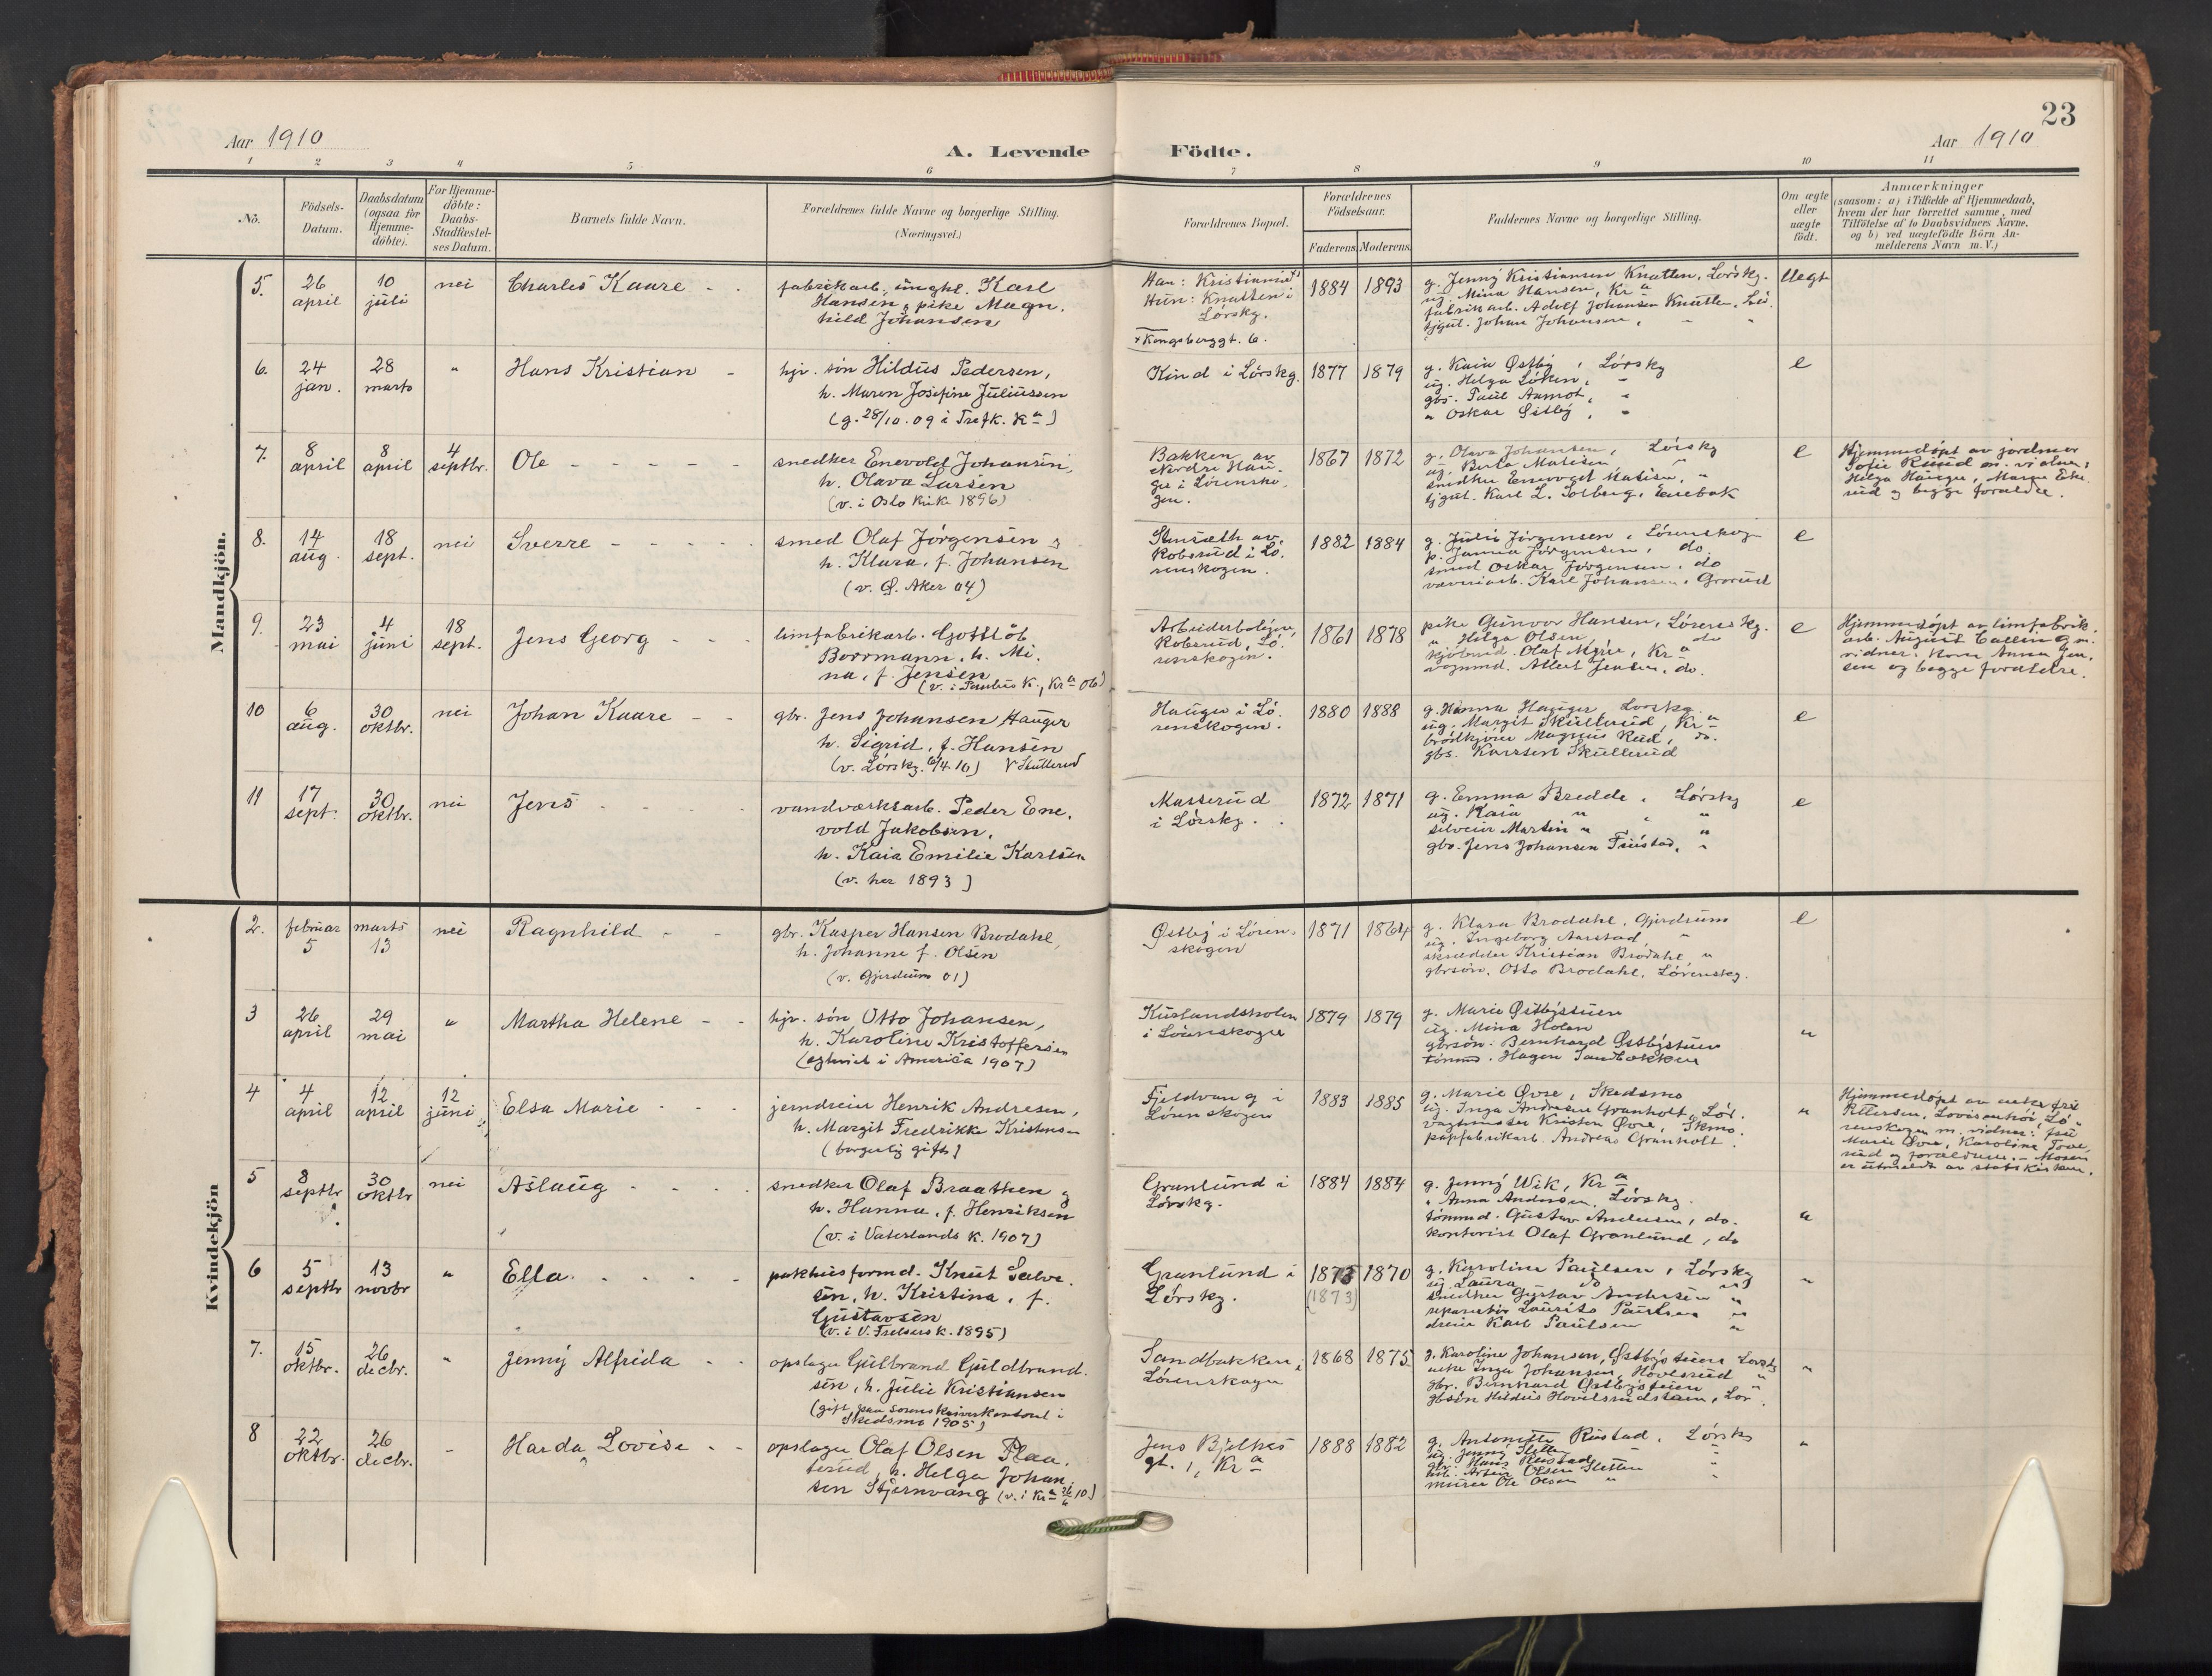 23
Aar 1910
A. Levende Födte.
Aar 1910
1 2 3 4 5 6 7 8 9 10 11
No.
Födsels-
Datum.
Daabsdatum
(ogsaa for
Hjemme-
döbte).
For Hjemme-
döbte:
Daabs-
Stadfæstel-
ses Datum.
Barnets fulde Navn.
Forældrenes fulde Navne og borgerlige Stilling.
(Næringsvei.)
Forældrenes Bopæl.
Forældrenes
Födselsaar.
Faderens. Moderens.
Faddernes Navne og borgerlige Stilling.
Om ægte
eller
uægte
födt.
Anmærkninger
(saasom: a) i Tilfælde af Hjemmedaab,
hvem der har forrettet samme, med
Tilföielse af to Daabsvidners Navne.
og b) ved uægtefödte Börn An-
melderens Navn m. V.)
Mandkjön.
5.
26
april
10
juli
nei
Charles Kaare - -
fabrikarb. ungkl. Karl
Hansen, pike Magn.
hild Johansen
Han: Kristiania
Hun: Knatten i
Lørskg.
Kongsberggt. 6.
1884 1893
g. Jenny Kristiansen Knatten, Lørskg.
ug. Mina Hansen, Kra
fabrikarb. Adolf Johansen Knatten, Lø.
tjgut. Johan Johansen, " "
Uegt
6.
24
jan.
28
marts
"
Hans Kristian -
hjv. søn Hildus Pedersen,
h. Maren Josefine Juliussen
(g. 28/10. 09 i Trefk. Kra)
Kind i Lørskg.
1877 1879
g. Kaia Østby, Lørskg
ug. Helga Løken, "
gbs. Paul Aamot, "
" Oskar Østby, "
e
7.
8
april
8
april
4
septbr.
Ole - - - - -
snedker Enevold Johansen,
h. Olava Larsen
(v. i Oslo kirke 1896)
Bakken av
nordre Hau-
ger i Lørensko
gen.
1867 1872
g. Olava Johansen, Lørskg
ug. Berta Matisen "
snedker Enevold Matisen, "
tjgut. Karl L. Solberg, Enebak
e
Hjemmedøpt av jordmor
Sofie Ruud m. vidner:
Helga Hauger, Maren Eke
rud og begge forældre.
8.
14
aug.
18
sept.
nei
Sverre - - - - -
smed Olaf Jørgensen og
h. Klara, f. Johansen
(v. Ø. Aker 04)
Robsrud i Lø.
renskogen.
1882 1884
g. Juli Jørgensen, Lørenskog
p. Janna Jørgensen, do.
smed Oskar Jørgensen, do
væveriarb. Karl Johansen, Grorud
e
9.
23
mai
4
juni
18
sept.
Jens Georg - - -
limfabrikarb. Gottlob
Borrmann, h. Mi.
na, f. Jensen
(v. i Paulus k., Kra 06)
Arbeiderboligen,
Robsrud, Lø.
renskogen.
1861 1878
pike Gunvor Hansen, Lørenskg.
" Helga Olsen, do
Olaf Myre, Kra
vognmd. Albert Jensen, do.
e
Hjemmedøpt av limfabrik.
arb. August Callin m.
vidner: Kone Anna Jen.
sen og begge forældre.
10
6
aug.
30
oktbr.
nei
Johan Kaare - -
gbr. Jens Johansen Hauger
h. Sigrid, f. Hansen
(v. Lørskg. 6/4 10) V Skullerud
Hauger i Lø.
renskogen.
1880 1888
g. Hanna Hauger, Lørskg.
ug. Margit Skullerud, Kra
brødkjører Magnus Rud, do.
gbs. Karsten Skullerud
e
11
17
sept.
30
oktbr.
nei
Jens - - - -
vandværksarb. Peder Ene.
vold Jakobsen,
h. Kaia Emilie Karlsen
(v. her 1893)
Masserud
i Lørskg.
1872 1871
g. Emma Bredde, Lørskg
ug. Kaia " "
Martin " "
gbs. Jens Johansen Fiustad, "
e
Kvindekjön
2.
februar
5
marts
13
nei
Ragnhild - -
gbr. Kasper Hansen Brodahl,
h. Johanne f. Olsen
(v. Gjerdrum 01)
Østby i Løren.
skogen
1871 1864
g. Klara Brodahl, Gjerdrum
ug. Ingeborg Aarstad, "
skrædder Kristian Brodahl, "
gbrsøn. Otto Brodahl, Lørenskg.
e
3
26
april
29
mai
"
Martha Helene - -
hjv. søn Otto Johansen,
h. Karoline Kristoffersen
(egteviet i America 1907)
Kurlandsholen
i Lørenskogen
1879 1879
g. Marie Østbystuen
ug. Mina Holen
gbrsøn. Bernhard Østbystuen
tømmd. Hagen Sandbakken
"
4
4
april
12
april
12
juni
Elsa Marie - - -
jerndreier Henrik Andresen,
h. Margit Fredrikke Kristensen
(borgerlig gifte)
Fjeldvang i
Lørenskogen
1883 1885
g. Marie Øvre, Skedsmo
ug. Inga Andresen Granholt, Lør.
vagtmester Kristen Øvre, Skmo.
papfabrikarb. Andreas Granholt.
"
Hjemmedøpt av enkefru
Petersen, Lovisenhøi, Lø
renskogen m. vidner: fru
Marie Øvre, Karoline Tove
rud og forældrene. - Moren
er utmeldt av statskirken.
5
8
septbr
30
oktbr
nei
Aslaug - - - -
snedker Olaf Braathen og
h. Hanna, f. Henriksen
(v. i Vaterlands k. 1907)
Granlund i
Lørskg.
1884 1884
g. Jenny Wik, Kra
" Anna Andersen, Lørskg.
tømmd. Gustav Andersen, do.
kontorist Olaf Granlund, do
"
6
5
septbr
13
novbr
"
Ella - - - -
pakhusformd. Knut Salve.
sen, h. Kristina, f.
Gustavsen
(v. i V. Frelsers k. 1895)
Granlund i
Lørskg.
1875 1870
(1873)
g. Karoline Paulsen, Lørskg
ug. Laura do "
snedker Gustav Andersen "
reparatør Laurits Paulsen "
dreier Karl Paulsen "
"
7.
15
oktbr.
26
decbr.
"
Jenny Alfrida - -
opslager Gulbrand Guldbrand.
sen, h. Julie Kristiansen
(gift paa Sorenskriverkontoret i
Skedsmo 1905)
Sandbakken i
Lørenskogen
1868 1875
g. Karoline Johansen, Østbystuen Lørskg
enke Inga Johansen, Hovelsrud "
gbr. Bernhard Østbystuen "
gbsøn Hildus Hovelsrudstuen, Lør.
"
8
22
oktbr.
26
decbr.
"
Harda Lovise - -
opslager Olaf Olsen Plaa.
terud, h. Helga Johan.
sen Stjernvang (v. i Kra 26/6 10)
Jens Bjelkes
gt. 1, Kra
1888 1882
g. Antonette Rustad, Lørskg
ug. Jenny Sletten "
gbr. Hans Rustad "
Olsen Sletten "
murer Ole Olsen " "
"